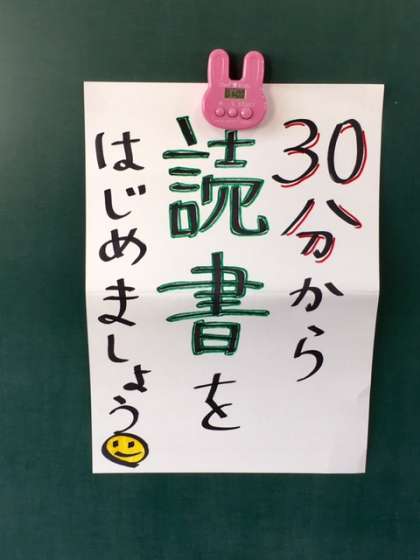 30分から
読書を
はじめましょう